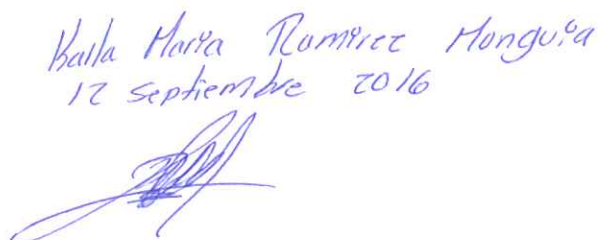 Karla Maria Ramirez Monguia
12 septiembre 2016